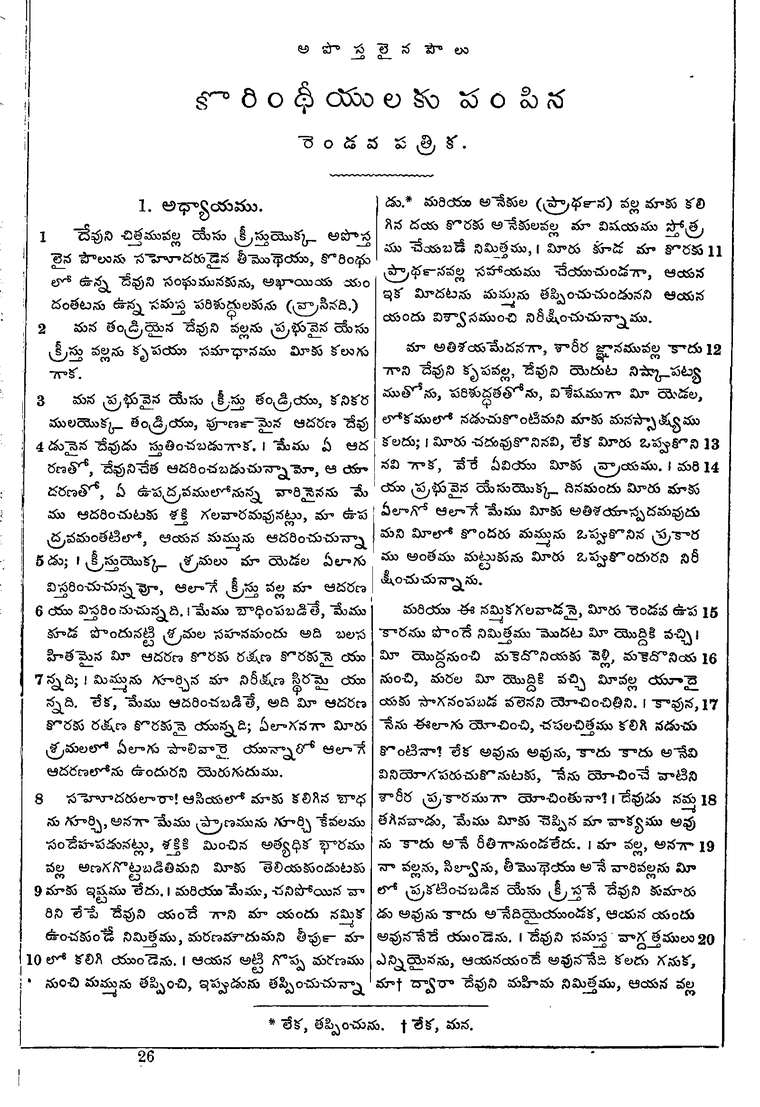 అ పొ స్త లై న పౌ లు
కొ రిం థీ యు ల కు పం పి న
రెం డ వ ప త్రి క.
1. అధ్యాయము.
1 దేవుని చిత్తమువల్ల యేసు క్రీస్తుయొక్క అపొస్త
లైన పౌలును సహోదరుడైన తీమొథెయు, కొరింథు
లో ఉన్న దేవుని సంఘమునకును, అఖాయియ యం
దంతటను ఉన్న సమస్త పరిశుద్ధులకును (వ్రాసినది.)
2 మన తండ్రియైన దేవుని వల్లను ప్రభువైన యేసు
క్రీస్తు వల్లను కృపయు సమాధానము మీకు కలుగు
గాక.
3 మన ప్రభువైన యేసు క్రీస్తు తండ్రియు, కనికర
ములయొక్క తండ్రియు, పూర్ణమైన ఆదరణ దేవు
4 డునైన దేవుడు స్తుతించబడుగాక. । మేము ఏ ఆద
రణతో, దేవునిచేత ఆదరించబడుచున్నామో, ఆ యా
దరణతో, ఏ ఉపద్రవములోనున్న వారినైనను మే
ము ఆదరించుటకు శక్తి గలవారమవునట్లు, మా ఉప
ద్రవమంతటిలో, ఆయన మమ్మును ఆదరించుచున్నా
5 డు; । క్రీస్తుయొక్క శ్రమలు మా యెడల ఏలాగు
విస్తరించుచున్నవో, ఆలాగే క్రీస్తు వల్ల మా ఆదరణ
6 యు విస్తరించుచున్నది. । మేము బాధింపబడితే, మేము
కూడ పొందునట్టి శ్రమల సహనమందు అది బలస
హితమైన మీ ఆదరణ కొరకు రక్షణ కొరకునై యు
7 న్నది; । మిమ్మును గూర్చిన మా నిరీక్షణ స్థిరమై యు
న్నది. లేక, మేము ఆదరించబడితే, అది మీ ఆదరణ
కొరకు రక్షణ కొరకునై యున్నది; ఏలాగనగా మీరు
శ్రమలలో ఏలాగు పాలివారై యున్నారో ఆలాగే
ఆదరణలోను ఉందురని యెరుగుదుము.
8 సహోదరులారా! ఆసియలో మాకు కలిగిన బాధ
ను గూర్చి, అనగా మేము ప్రాణమును గూర్చి కేవలము
సందేహపడునట్లు, శక్తికి మించిన అత్యధిక భారము
వల్ల అణగగొట్టబడితిమని మీకు తెలియకుండుటకు
9 మాకు ఇష్టము లేదు. । మరియు మేము, చనిపోయిన వా
రిని లేపే దేవుని యందే గాని మా యందు నమ్మిక
ఉంచకుండే నిమిత్తము, మరణమాదుమని తీర్పు మా
10 లో కలిగి యుండెను. । ఆయన అట్టి గొప్ప మరణము
* నుంచి మమ్మును తప్పించి, ఇప్పుడును తప్పించుచున్నా
డు.* మరియు అనేకుల (ప్రార్థన) వల్ల మాకు కలి
గిన దయ కొరకు అనేకులవల్ల మా విషయము స్తోత్ర
ము చేయబడే నిమిత్తము, । మీరు కూడ మా కొరకు 11
ప్రార్థనవల్ల సహాయము చేయుచుండగా, ఆయన
ఇక మీదటను మమ్మును తప్పించుచుండునని ఆయన
యందు విశ్వాసముంచి నిరీక్షించుచున్నాము.
మా అతిశయమేదనగా, శారీర జ్ఞానమువల్ల కాదు 12
గాని దేవుని కృపవల్ల, దేవుని యెదుట నిష్కాపట్య
ముతోను, పరిశుద్ధతతోను, విశేషముగా మీ యెడల,
లోకములో నడుచుకొంటిమని మాకు మనస్సాక్ష్యము
కలదు; । మీరు చదువుకొనినవి, లేక మీరు ఒప్పుకొని 13
నవి గాక, వేరే ఏవియు మీకు వ్రాయము. । మరి 14
యు ప్రభువైన యేసుయొక్క దినమందు మీరు మాకు
ఏలాగో ఆలాగే మేము మీకు అతిశయాస్పదమవుదు
మని మీలో కొందరు మమ్మును ఒప్పుకొనిన ప్రకార
ము అంతము మట్టుకును మీరు ఒప్పుకొందురని నిరీ
క్షించుచున్నాను.
మరియు ఈ నమ్మికగలవాడనై, మీరు రెండవ ఉప 15
కారమును పొందే నిమిత్తము మొదట మీ యొద్దికి వచ్చి ।
మీ యొద్దనుంచి మకెదొనియకు వెళ్లి, మకెదొనియ 16
నుంచి, మరల మీ యొద్దికి వచ్చి మీవల్ల యూదై
యకు సాగనంపబడ వలెనని యోచించితిని. । కావున, 17
నేను ఈలాగు యోచించి, చపలచిత్తము కలిగి నడుచు
కొంటినా? లేక అవును అవును, కాదు కాదు అనేవి
వినియోగపరుచుకొనుటకు, నేను యోచించే వాటిని
శారీర ప్రకారముగా యోచింతునా? । దేవుడు నమ్మ 18
తగినవాడు, మేము మీకు చెప్పిన మా వాక్యము అవు
ను కాదు అనే రీతిగానుండలేదు. । మా వల్ల, అనగా 19
నా వల్లను, సిల్వాను, తీమొథెయు అనే వారివల్లను మీ
లో ప్రకటించబడిన యేసు క్రీస్తనే దేవుని కుమారు
డు అవును కాదు అనేదియైయుండక, ఆయన యందు
అవుననేదే యుండెను. । దేవుని సమస్త వాగ్దత్తములు 20
ఎన్నియైనను, ఆయనయందే అవుననేది కలదు గనుక,
మా† ద్వారా దేవుని మహిమ నిమిత్తము, ఆయన వల్ల
* లేక, తప్పించును. † లేక, మన.
26